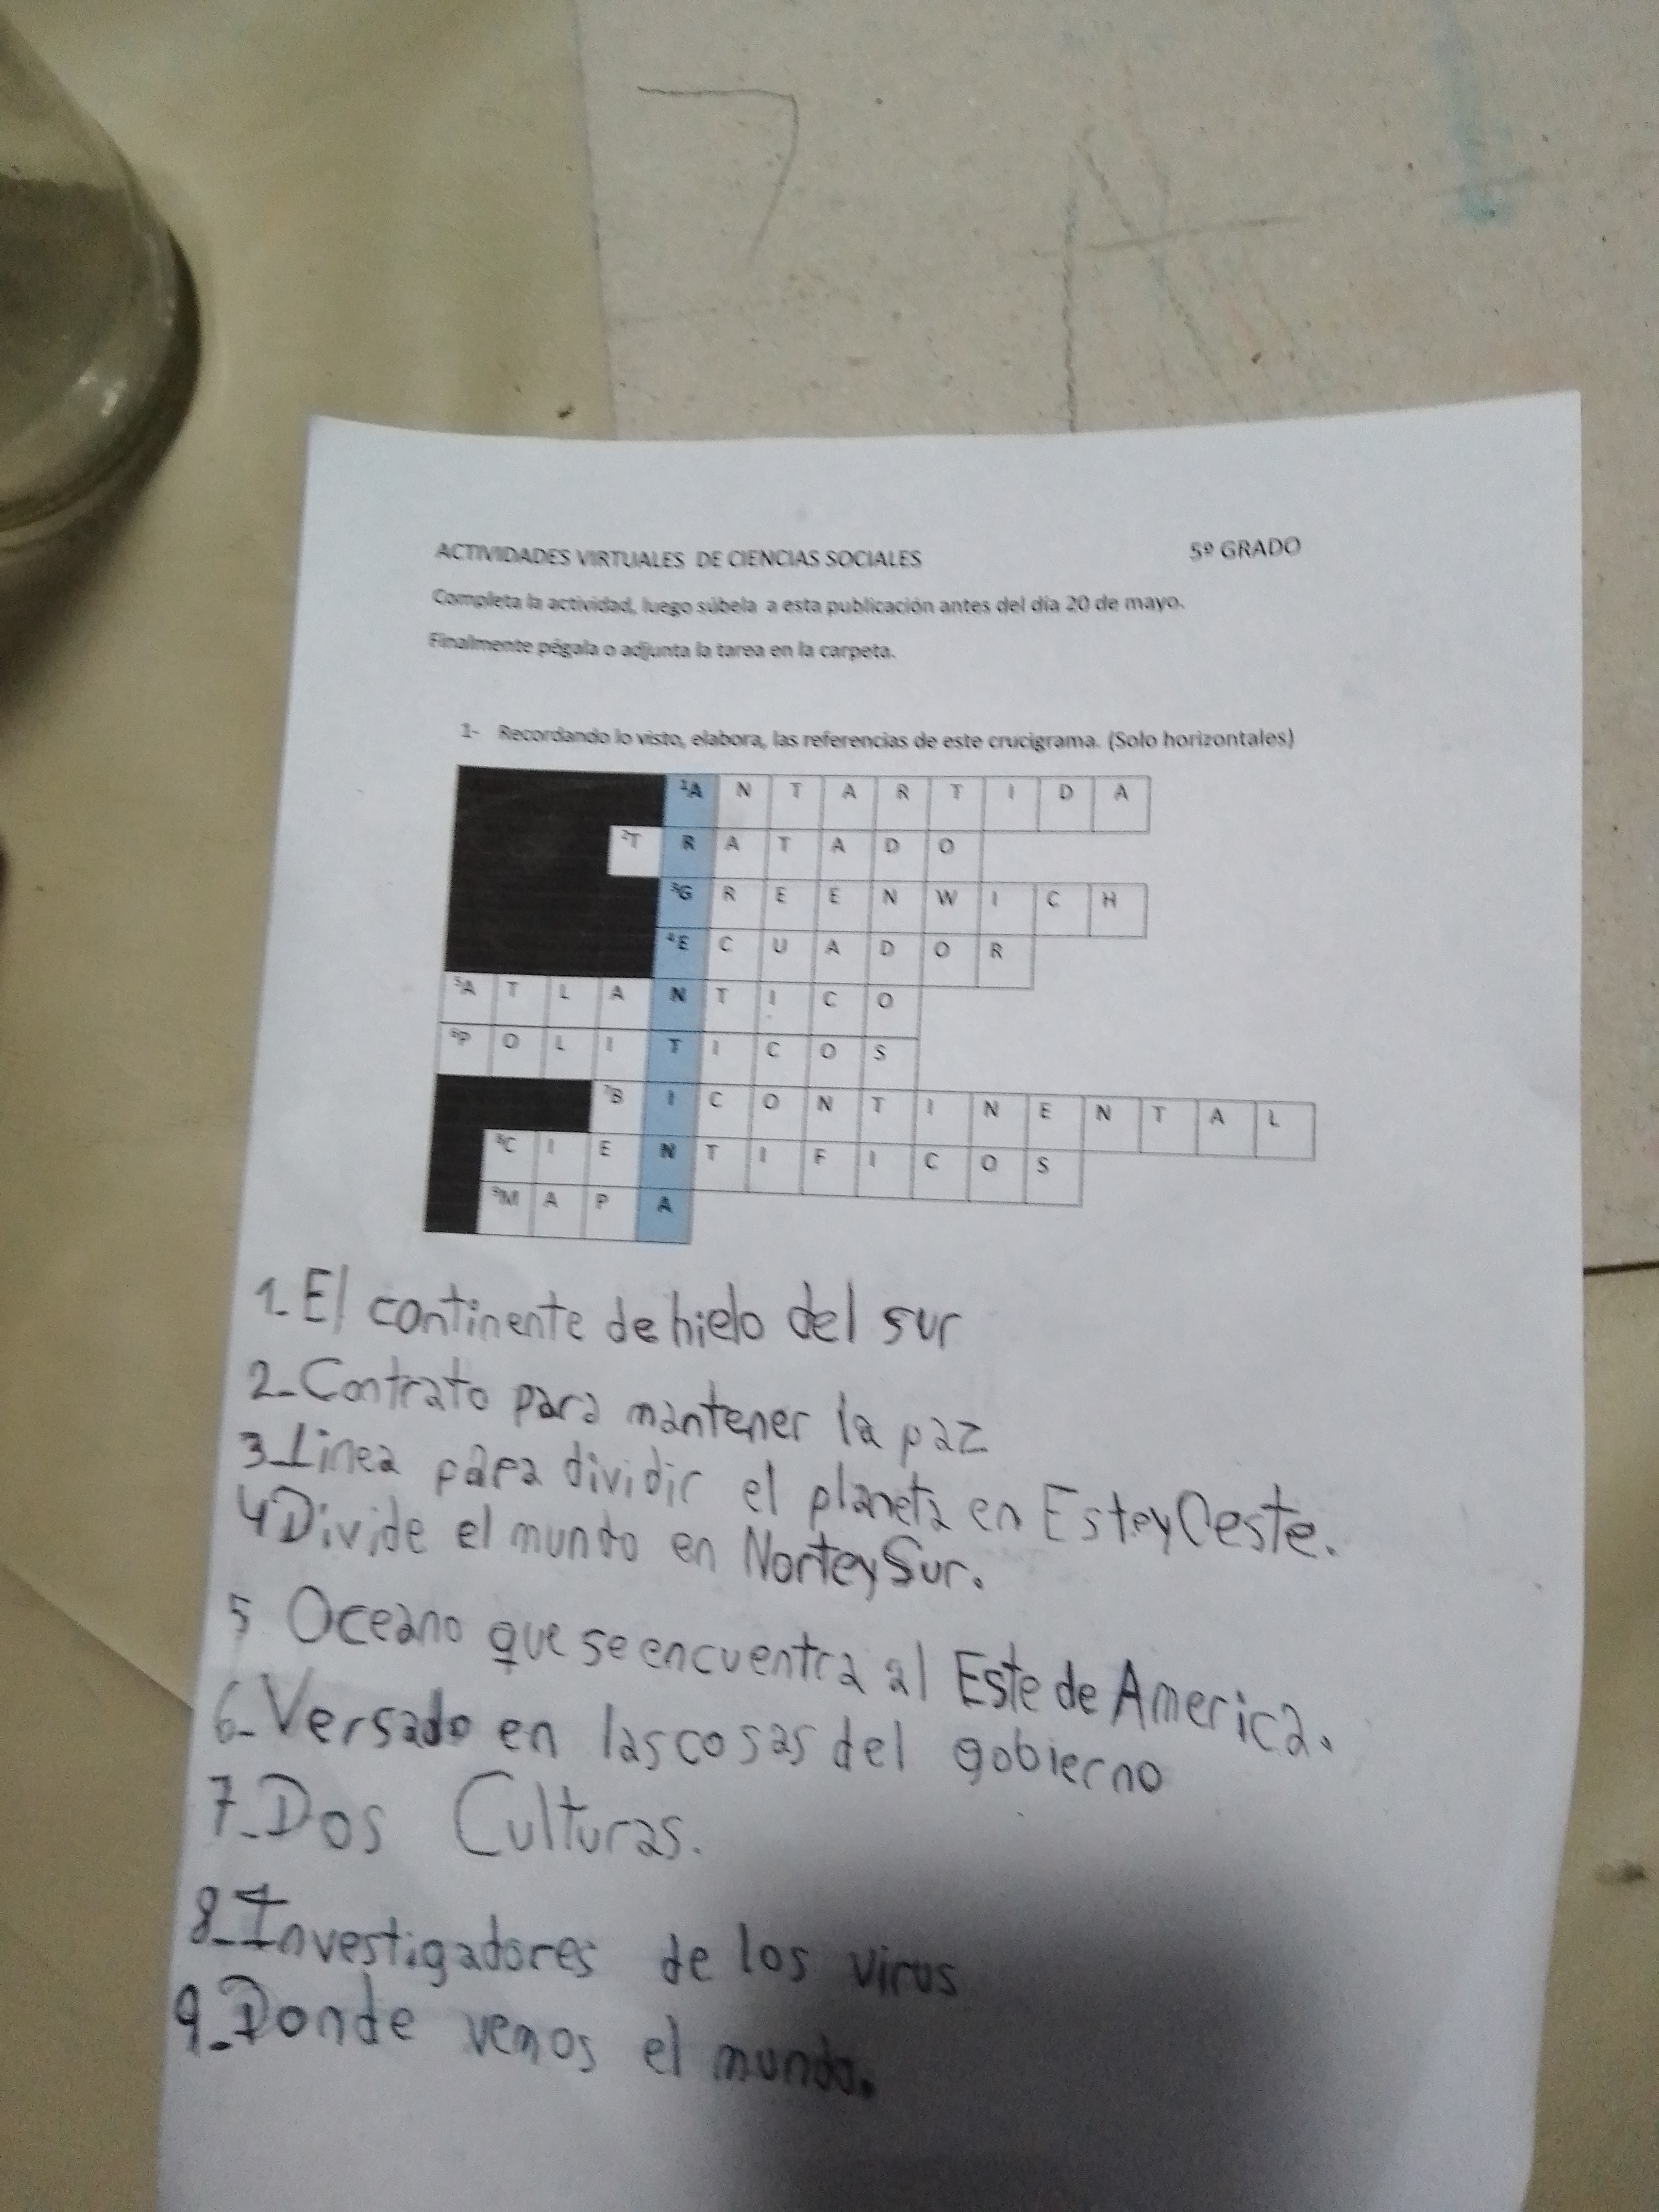 ACTIVIDADES VIRTUALES DE CIENCIAS SOCIALES 5º GRADO
Completa la actividad, luego súbela a esta publicación antes del día 20 de mayo.
Finalmente pégala o adjunta la tarea en la carpeta.
1- Recordando lo visto, elabora, las referencias de este crucigrama. (Solo horizontales)
1A N T A R T I D A
2T R A T A D O
3G R E E N W I C H
4E C U A D O R
5A T L A N T I C O
6P O L I T I C O S
7B I C O N T I N E N T A L
8C I E N T I F I C O S
9M A P A
1- El continente de hielo del sur
2- Contrato para mantener la paz
3- Linea para dividir el planeta en Este y Oeste.
4 Divide el mundo en Norte y Sur.
5 Oceano que se encuentra al Este de America.
6- Versado en las cosas del gobierno
7- Dos Culturas.
8- Investigadores de los virus
9- Donde vemos el mundo.